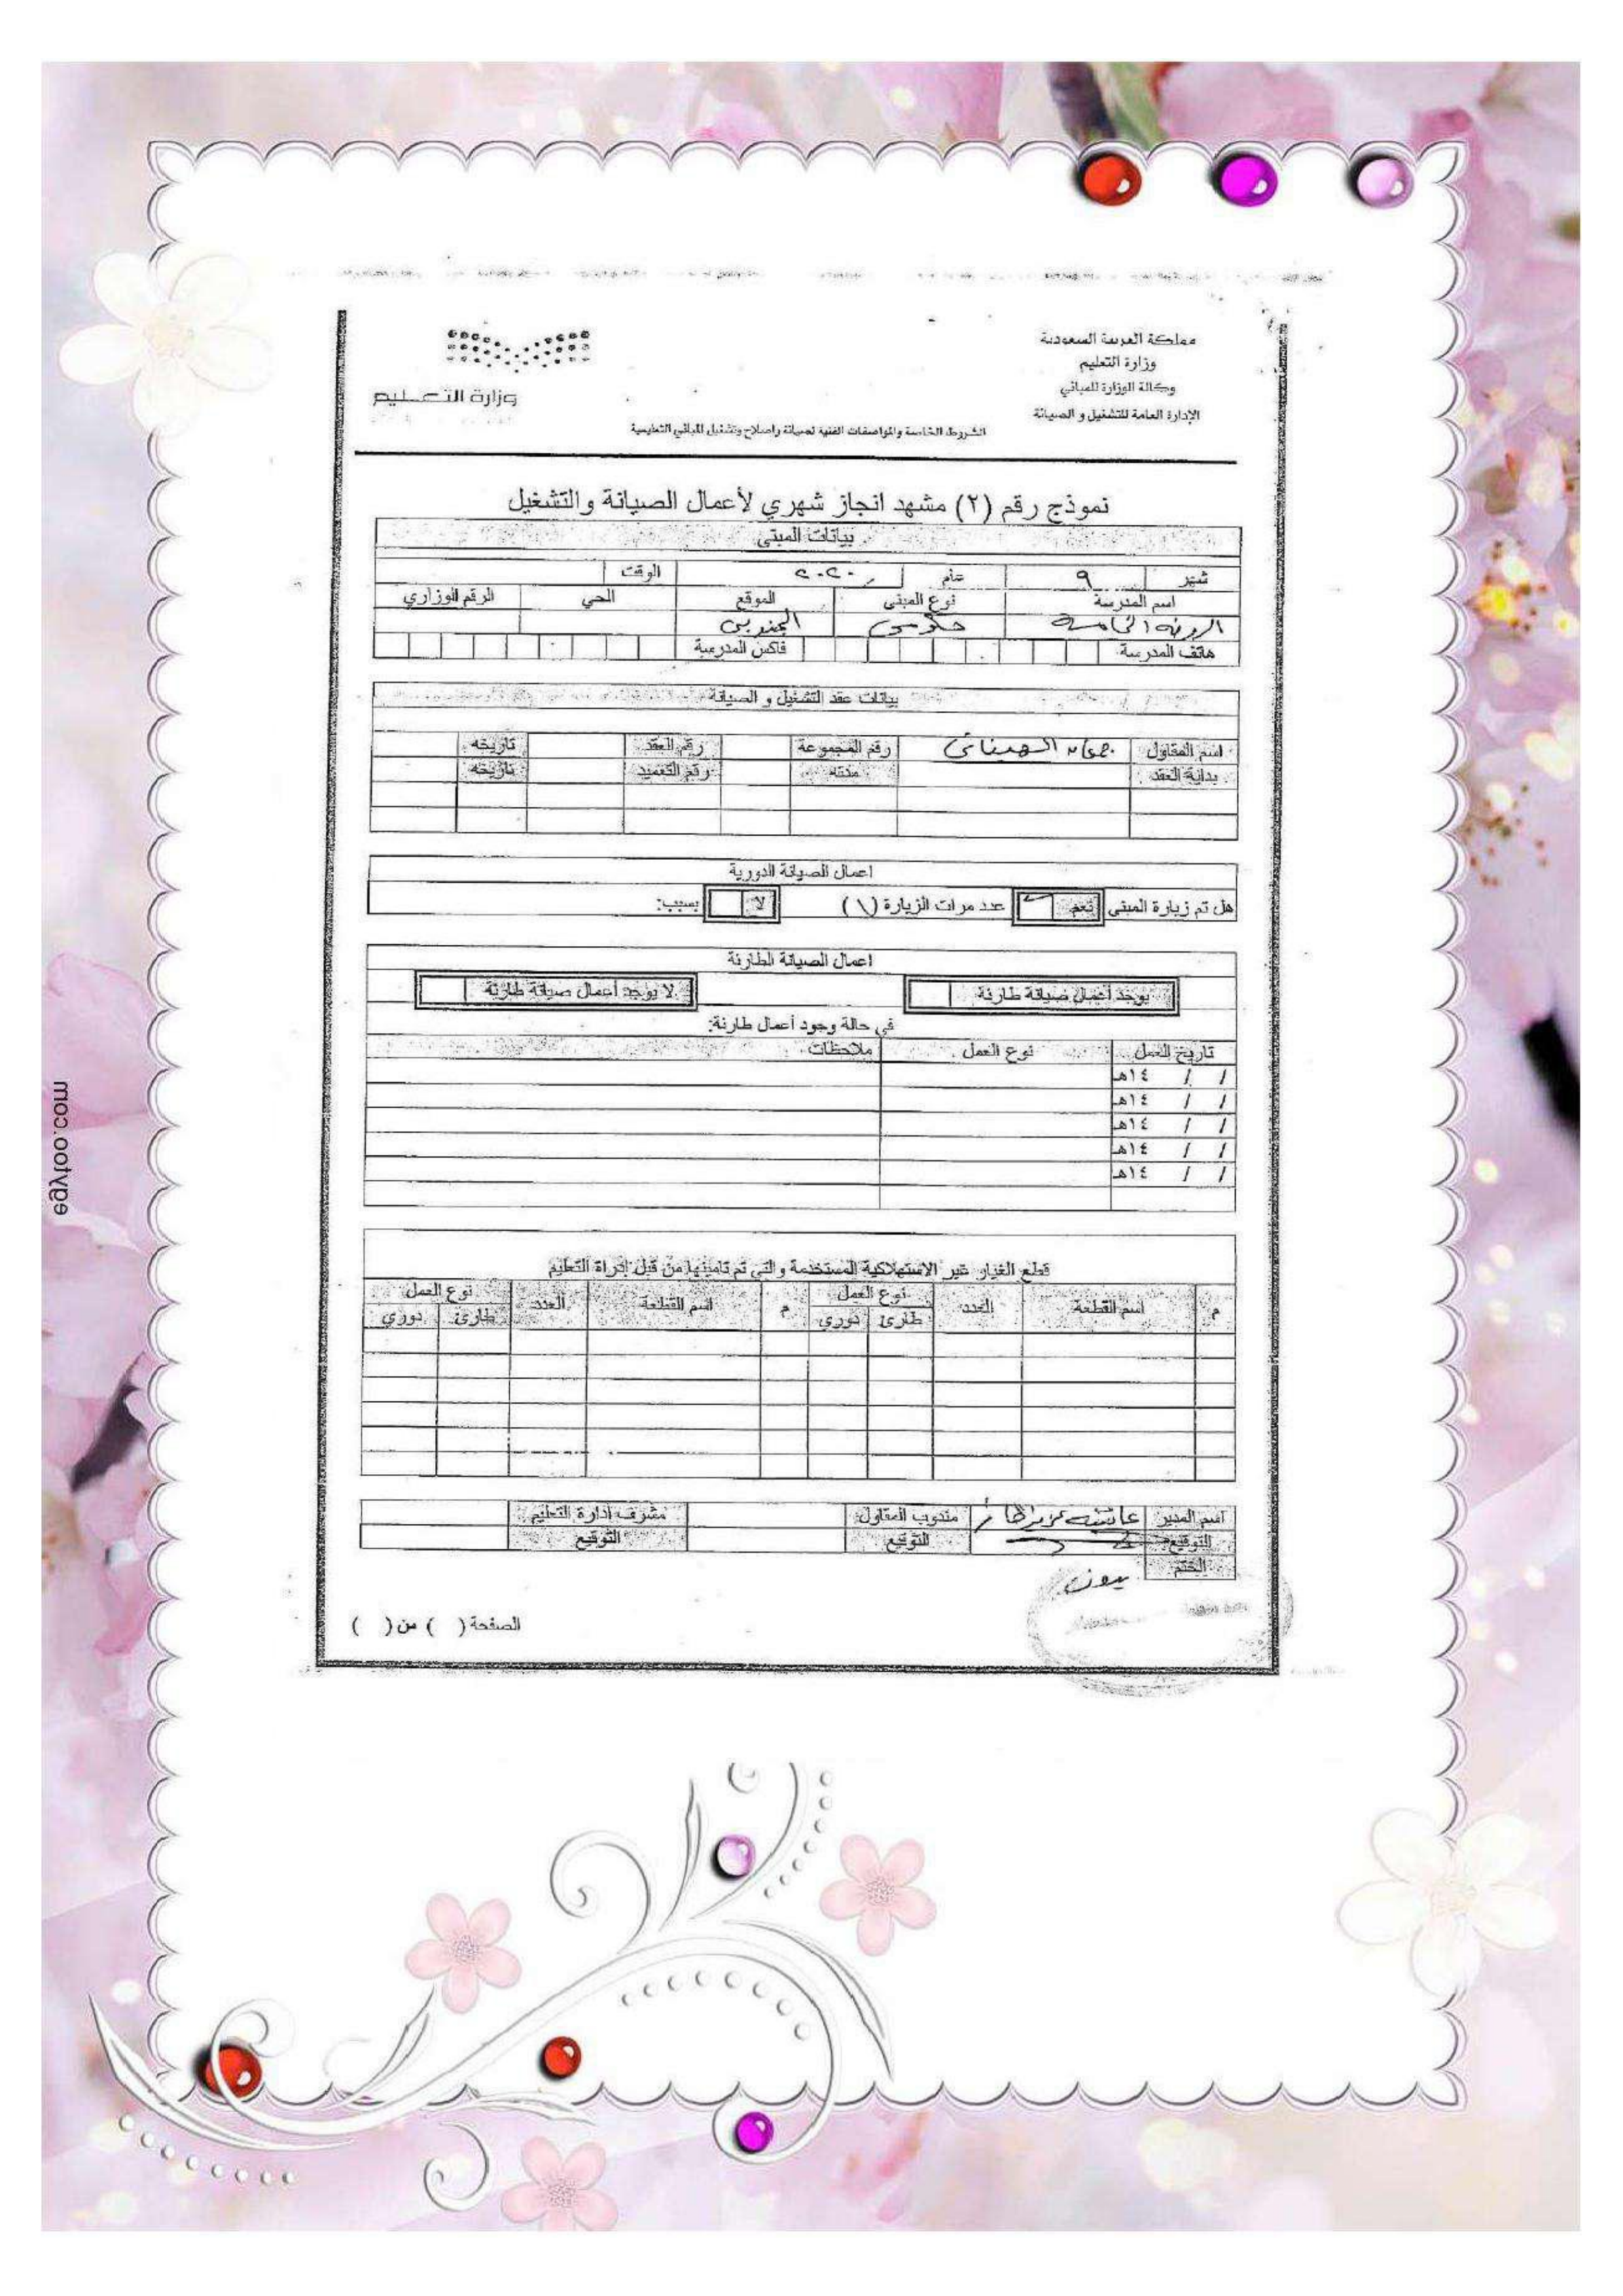 مملكة العربية السعودية
وزارة التعليم
وكالة الوزارة للمباني
الإدارة العامة للتشغيل و الصيانة
وزارة التعليم
الشروط الخاصة والمواصفات الفنية لصيانة وإصلاح وتشغيل المباني التعليمية
نموذج رقم (٢) مشهد انجاز شهري لأعمال الصيانة والتشغيل
بيانات المبنى
شهر ٩ عام ٢٠٢٠ الوقت
اسم المدرسة نوع المبنى الموقع الحي الرقم الوزاري
الروضه الخامسه حكومي
هاتف المدرسة فاكس المدرسة
بيانات عقد التشغيل و الصيانة
اسم المقاول رقم المجموعة رقم العقد تاريخه
بداية العقد مدته رقم التعميد تاريخه
اعمال الصيانة الدورية
هل تم زيارة المبنى نعم عدد مرات الزيارة (١) لا بسبب:
اعمال الصيانة الطارئة
يوجد أعمال صيانة طارئة لا يوجد أعمال صيانة طارئة
في حالة وجود أعمال طارئة:
تاريخ العمل نوع العمل ملاحظات
/ / ١٤هـ
/ / ١٤هـ
/ / ١٤هـ
/ / ١٤هـ
/ / ١٤هـ
قطع الغيار غير الاستهلاكية المستخدمة والتي تم تامينها من قبل إدراة التعليم
م اسم القطعة العدد نوع العمل م اسم القطعة العدد نوع العمل
طارئ دوري طارئ دوري
اسم المدير عائشه مندوب المقاول مشرف إدارة التعليم
التوقيع التوقيع التوقيع
الختم
الصفحة ( ) من ( )
egyfoo.com